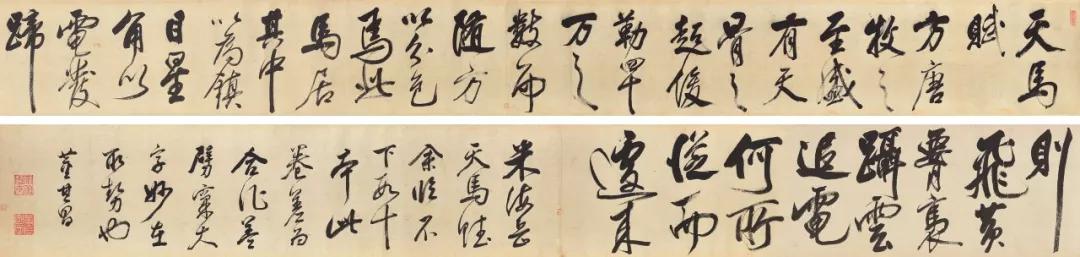 天馬
賦
方唐
牧之
至盛
有天
骨之
超俊
勒四十
万之
數而
隨方
以分色
焉此
馬居
其中
以為鎮
目星
角以
電發
蹄
則
飛黃
腰褭
躡雲
追電
何所
從而
遽来
米海岳
天馬賦
余臨不
下數十
本此
卷差為
合作蓋
劈窠大
字妙在
取勢也
董其昌